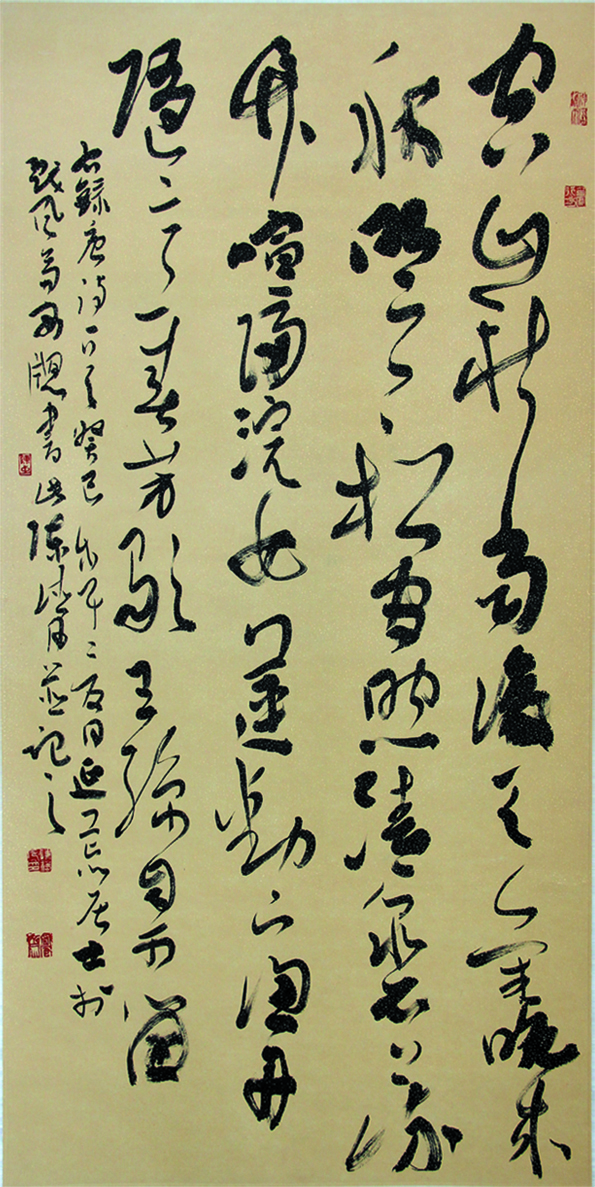 空山新雨後天氣晚來
秋明月松間照清泉石上流
竹喧歸浣女蓮動下漁舟
隨意春芳歇王孫自可留
右錄唐詩一首癸巳 居士於
書 並記之